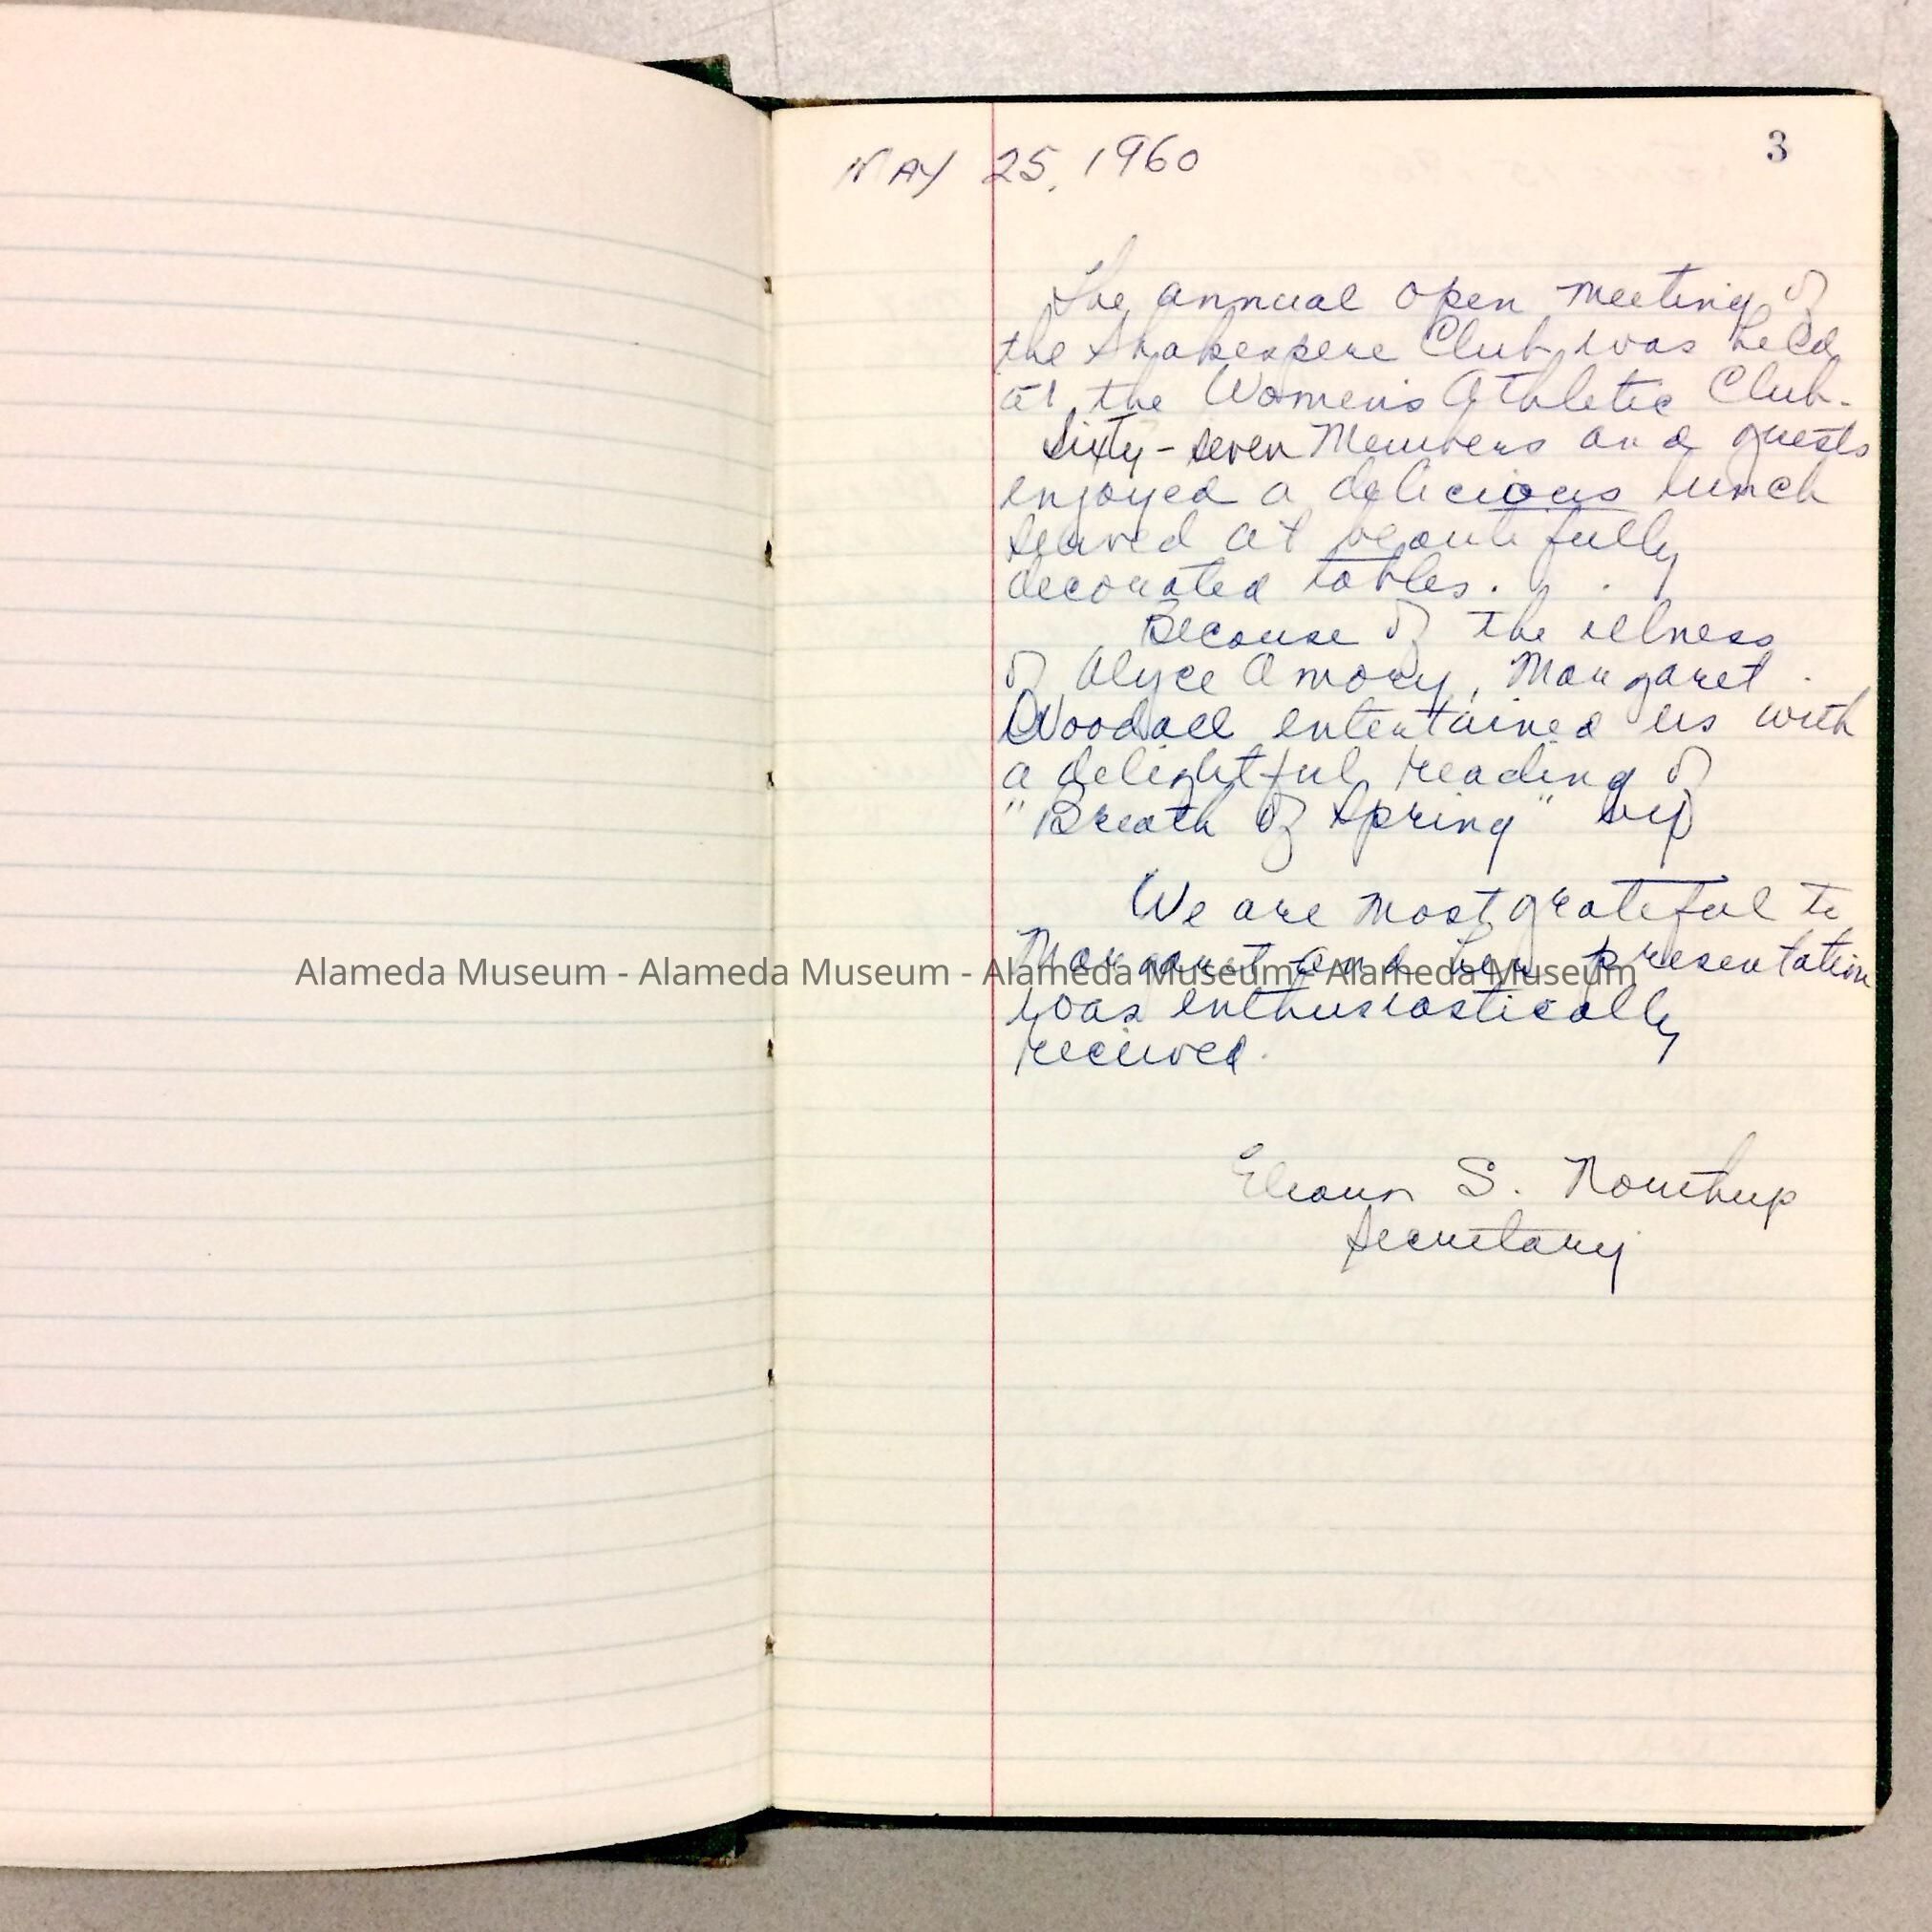 3
MAY 25, 1960
The annual open meeting of
the Shakespere Club was held
at the Women's Athletic Club.
Sixty-seven Members and guests
enjoyed a delicious lunch
served at beautifully
decorated tables.
Because of the illness
of Alyce Amory, Margaret
Woodall entertained us with
a delightful reading of
"Breath of Spring" by
We are most grateful to
Margaret and her presentation
was enthusiastically
received.
Eleanor S. Northup
Secretary
Alameda Museum - Alameda Museum - Alameda Museum - Alameda Museum